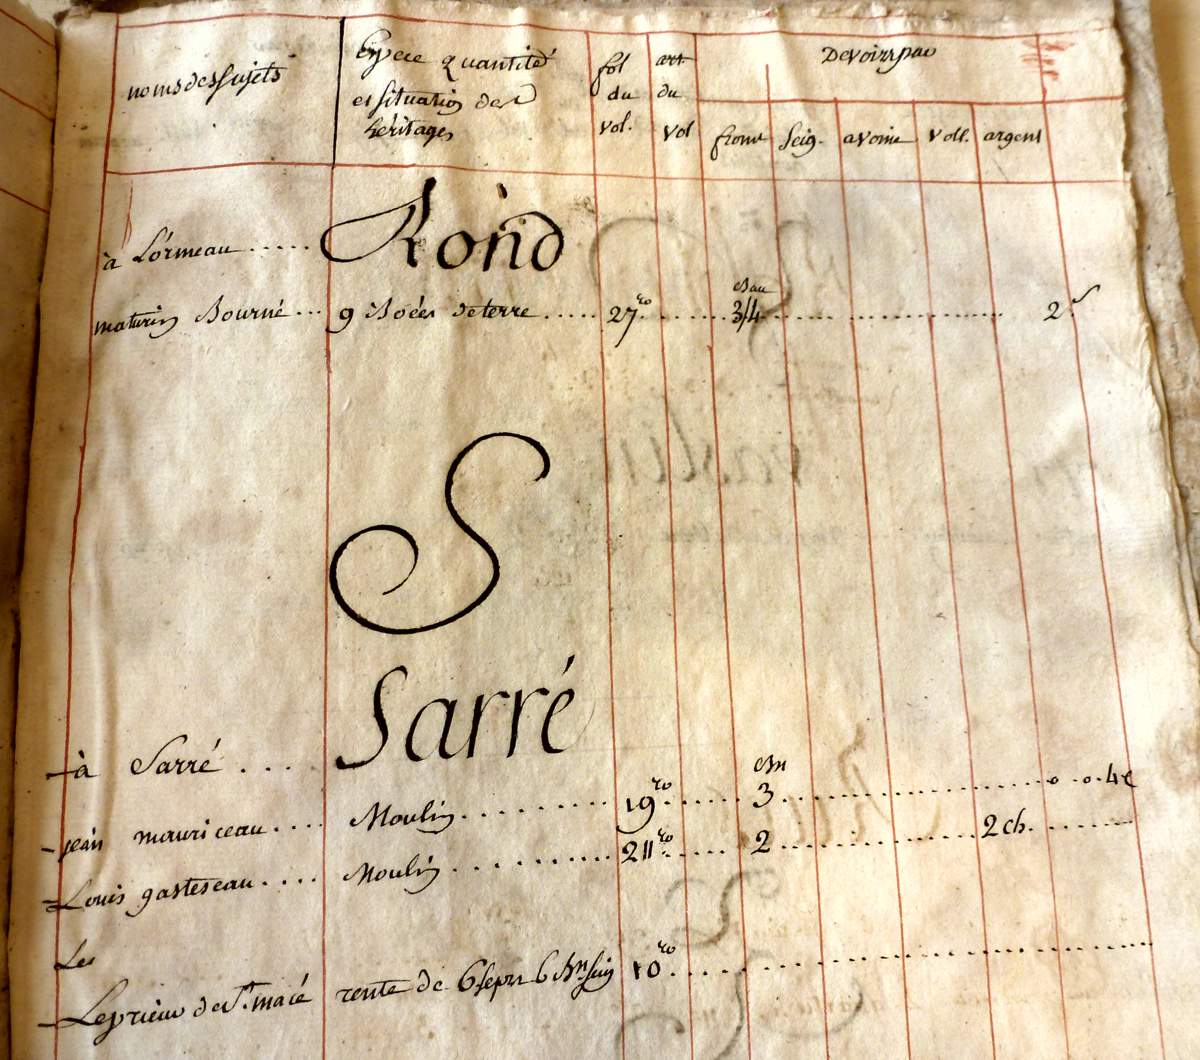 noms des sujets
Espece quantité
et situation des
heritages
fol du vol.
art du vol
Devoirs par
from. seig. avoine voll. argent
à Lormeau ..... Rond
maturin Bourné ... 9 Boées de terre ..... 27 ro ...... 3/4 Bau ........ 2 s
S
Sarré
à Sarré ....
jean mauriceau .... Moulin ........ 19 ro ..... 3 Bn ........ 4
Louis gasteseau .... Moulin ........ 21 ro ..... 2 ........ 2 ch.
Les
Le prieur de St. macé rente de 6 sepn 6 Bn seig 10 ro